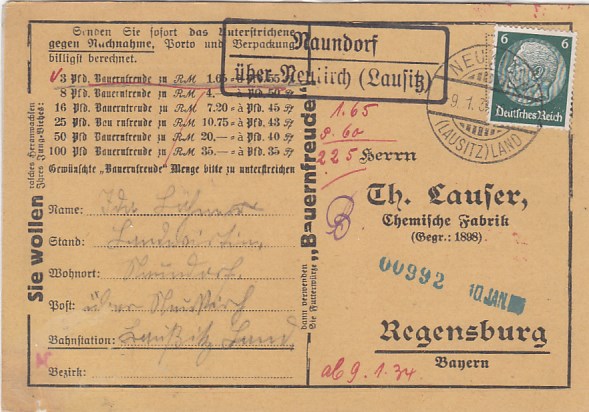 Senden Sie sofort das Unterstrichene
gegen Nachnahme, Porto und Verpackung
billigst berechnet.
3 Pfd. Bauernfreude zu RM 1.65
8 Pfd. Bauernfreude zu RM
16 Pfd. Bauernfreude zu RM 7.20 = à Pfd. 45 Pf
25 Pfd. Bauernfreude zu RM 10.75 = à Pfd. 43 Pf
50 Pfd. Bauernfreude zu RM 20.— = à Pfd. 40 Pf
100 Pfd. Bauernfreude zu RM 35.— = à Pfd. 35 Pf
Gewünschte „Bauernfreude“ Menge bitte zu unterstreichen
Sie wollen
solches Heranwachsen
Ihres Jung-Viehes:
Name:
Stand: Landwirtin
Wohnort: Naundorf
Post: über Neukirch
Bahnstation: Land
Bezirk:
dann verwenden
Sie Futterwürze
„Bauernfreude“
Naundorf
über Neukirch (Lausitz)
1.65
60
2 25
Herrn
Th. Lauser,
Chemische Fabrik
(Gegr.: 1898)
00392
10. JAN
Regensburg
Bayern
ab 9. 1. 34.
9.1.3
(LAUSITZ) LAND
6 6
Deutsches Reich